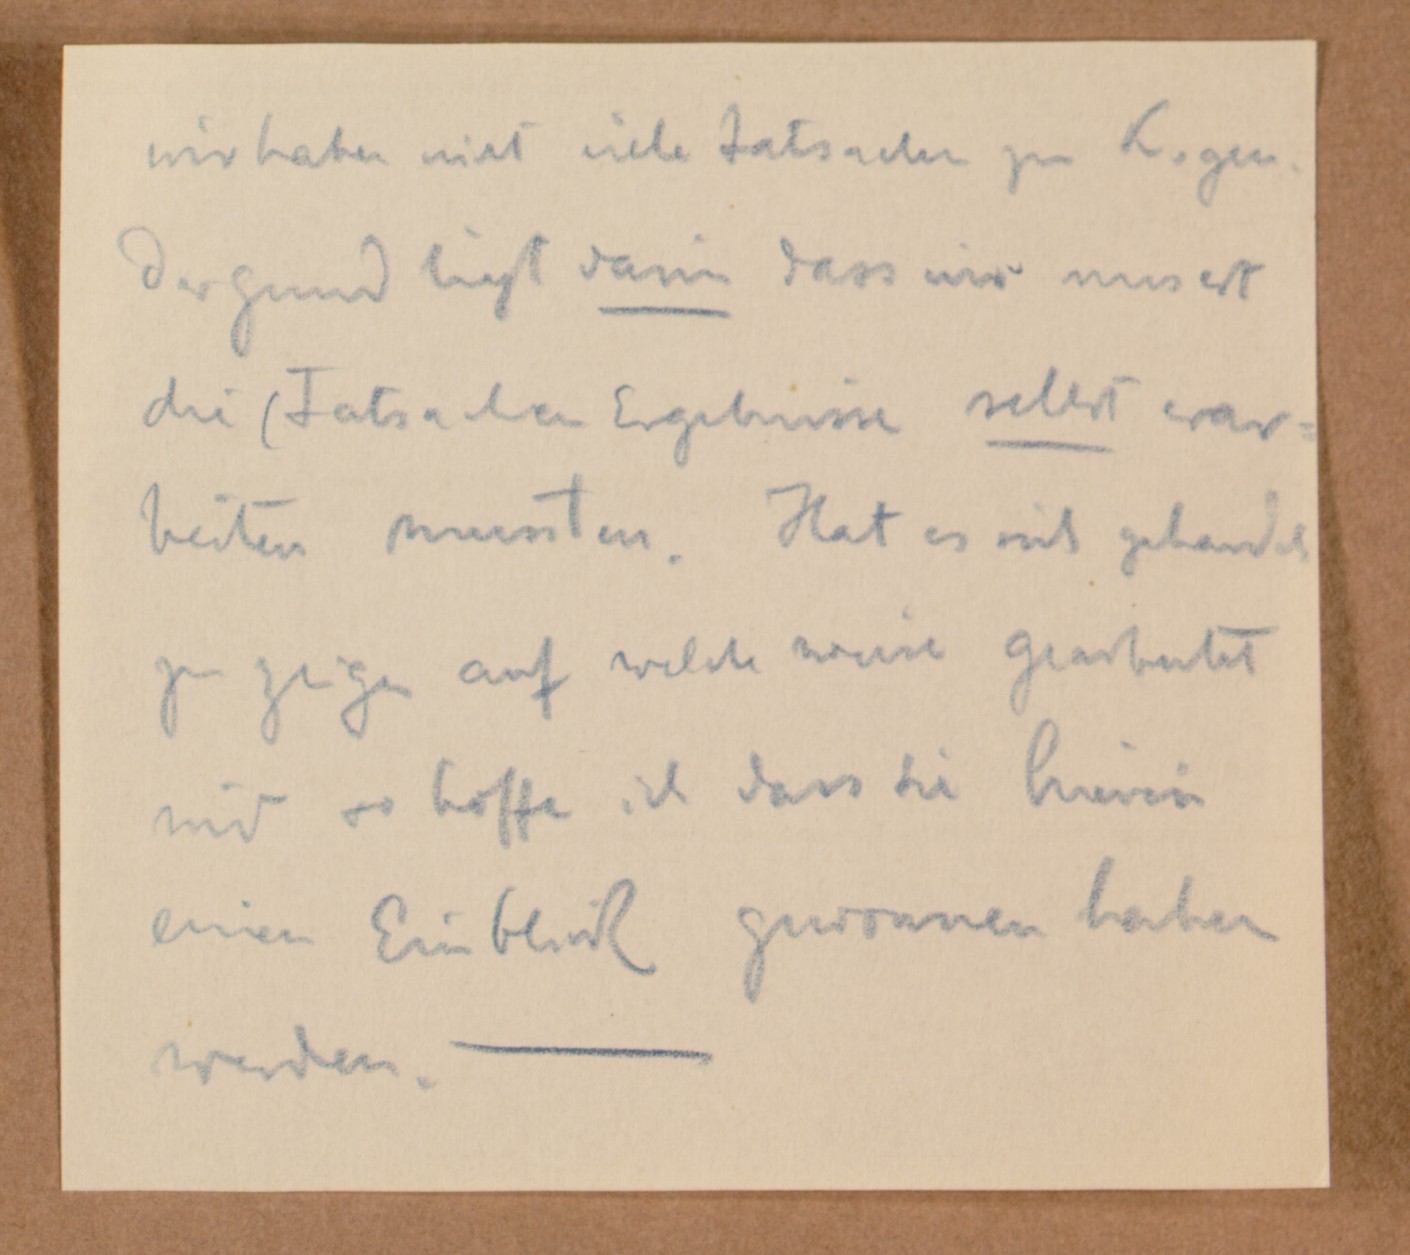 wir haben nicht viele Tatsachen zu
Der Grund liegt darin dass wir uns erst
die (Tatsachen Ergebnisse selbst erar=
beiten mussten. Hat es sich gehandelt
zu zeigen auf welche weise gearbeitet
wird so hoffe ich dass Sie hierin
einen Einblick gewonnen haben
werden.